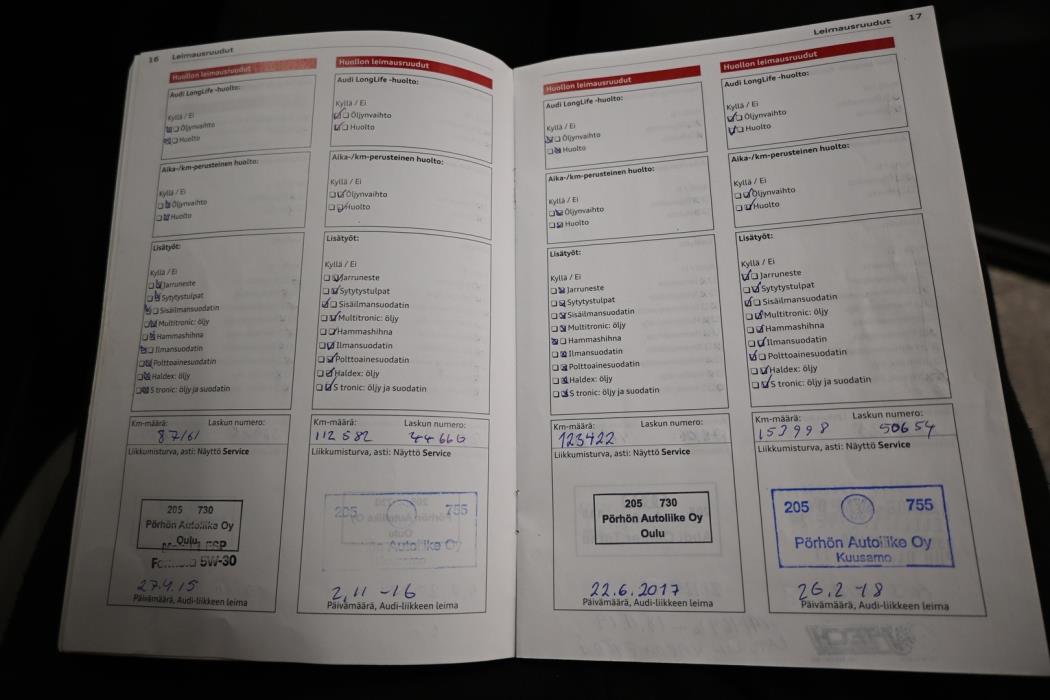 16 Leimausruudut
Huollon leimausruudut
Audi LongLife -huolto:
Kyllä / Ei
Öljynvaihto
Huolto
Aika-/km-perusteinen huolto:
Kyllä / Ei
Öljynvaihto
Huolto
Lisätyöt:
Kyllä / Ei
Jarruneste
Sytytystulpat
Sisäilmansuodatin
Multitronic: öljy
Hammashihna
Ilmansuodatin
Polttoainesuodatin
Haldex: öljy
S tronic: öljy ja suodatin
Km-määrä: Laskun numero:
87161
Liikkumisturva, asti: Näyttö Service
205 730
Pörhön Autoliike Oy
Oulu
5W-30
27.4.15
Päivämäärä, Audi-liikkeen leima
Huollon leimausruudut
Audi LongLife -huolto:
Kyllä / Ei
Öljynvaihto
Huolto
Aika-/km-perusteinen huolto:
Kyllä / Ei
Öljynvaihto
Huolto
Lisätyöt:
Kyllä / Ei
Jarruneste
Sytytystulpat
Sisäilmansuodatin
Multitronic: öljy
Hammashihna
Ilmansuodatin
Polttoainesuodatin
Haldex: öljy
S tronic: öljy ja suodatin
Km-määrä: Laskun numero:
112 582 44660
Liikkumisturva, asti: Näyttö Service
205 755
Autoliike Oy
Kuusamo
2,11 -16
Päivämäärä, Audi-liikkeen leima
Leimausruudut 17
Huollon leimausruudut
Audi LongLife -huolto:
Kyllä / Ei
Öljynvaihto
Huolto
Aika-/km-perusteinen huolto:
Kyllä / Ei
Öljynvaihto
Huolto
Lisätyöt:
Kyllä / Ei
Jarruneste
Sytytystulpat
Sisäilmansuodatin
Multitronic: öljy
Hammashihna
Ilmansuodatin
Polttoainesuodatin
Haldex: öljy
S tronic: öljy ja suodatin
Km-määrä: Laskun numero:
123422
Liikkumisturva, asti: Näyttö Service
205 730
Pörhön Autoliike Oy
Oulu
22.6.2017
Päivämäärä, Audi-liikkeen leima
Huollon leimausruudut
Audi LongLife -huolto:
Kyllä / Ei
Öljynvaihto
Huolto
Aika-/km-perusteinen huolto:
Kyllä / Ei
Öljynvaihto
Huolto
Lisätyöt:
Kyllä / Ei
Jarruneste
Sytytystulpat
Sisäilmansuodatin
Multitronic: öljy
Hammashihna
Ilmansuodatin
Polttoainesuodatin
Haldex: öljy
S tronic: öljy ja suodatin
Km-määrä: Laskun numero:
153998 50654
Liikkumisturva, asti: Näyttö Service
205 755
Pörhön Autoliike Oy
Kuusamo
26.2 -18
Päivämäärä, Audi-liikkeen leima